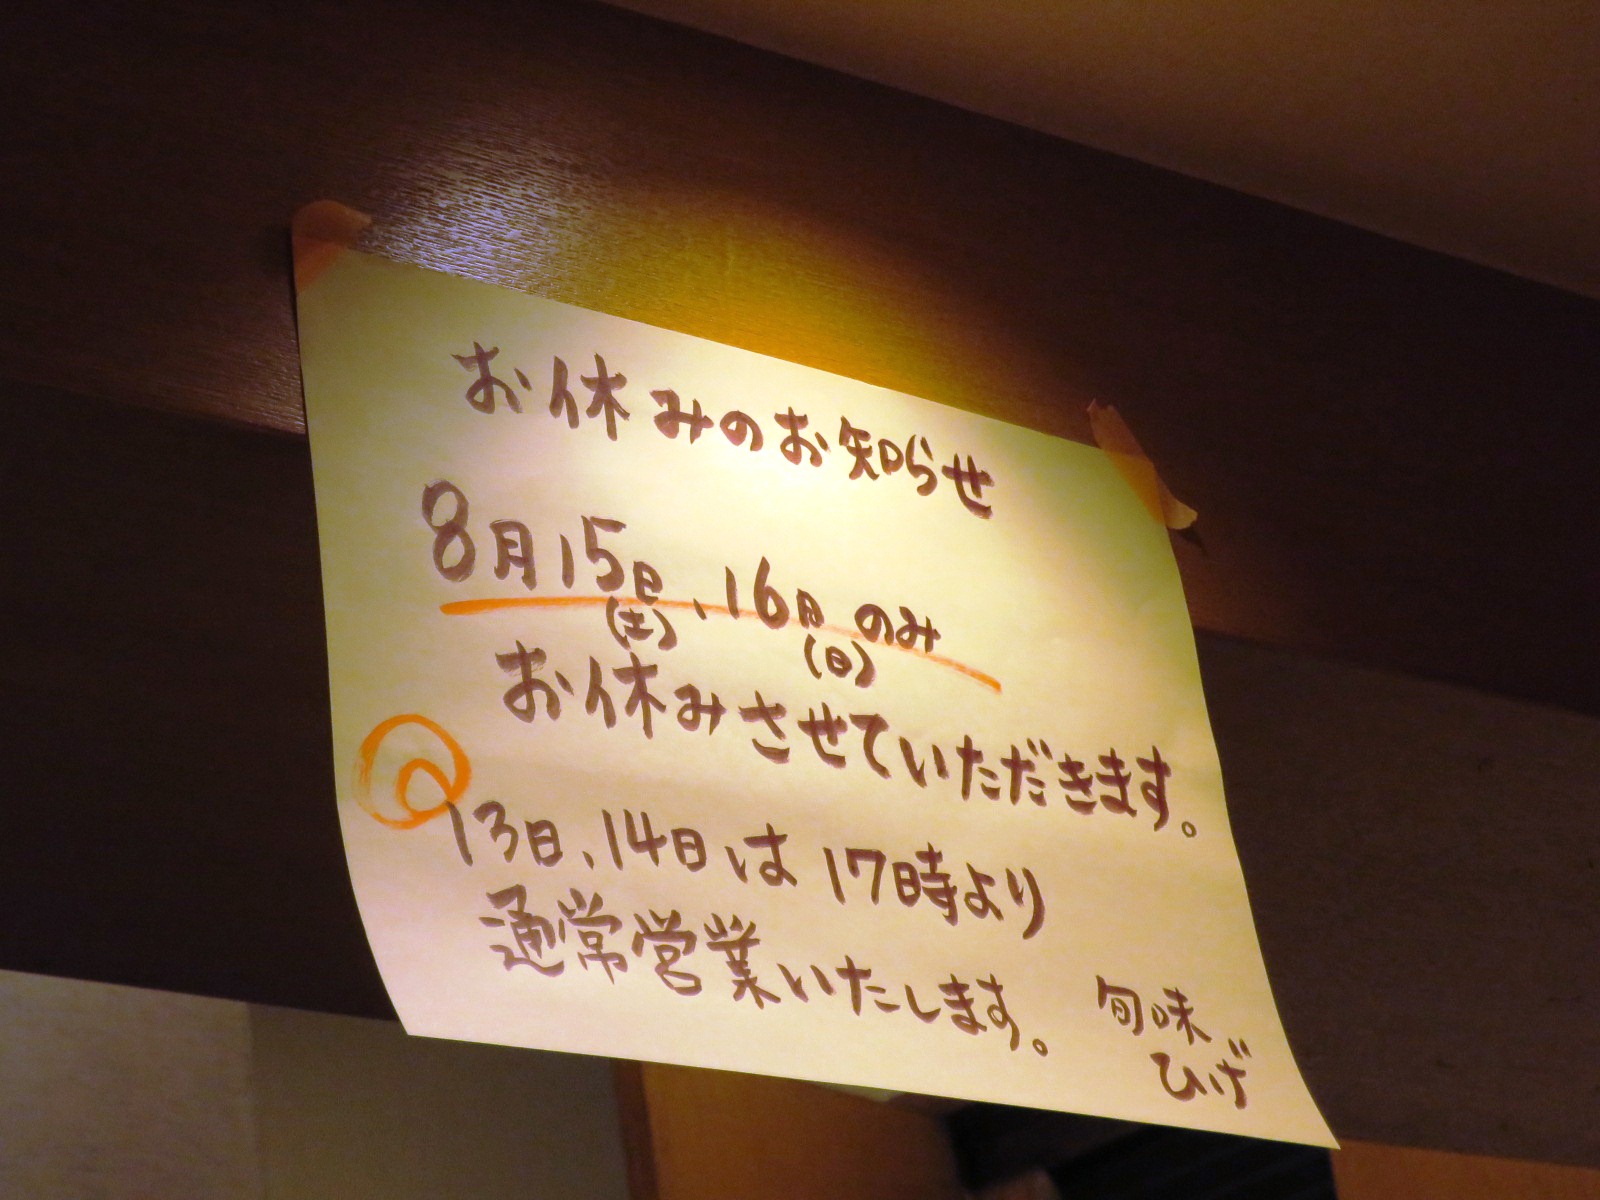 お休みのお知らせ
8月15日(土)、16日(日)のみ
お休みさせていただきます。
13日、14日は17時より
通常営業いたします。
旬味
ひげ